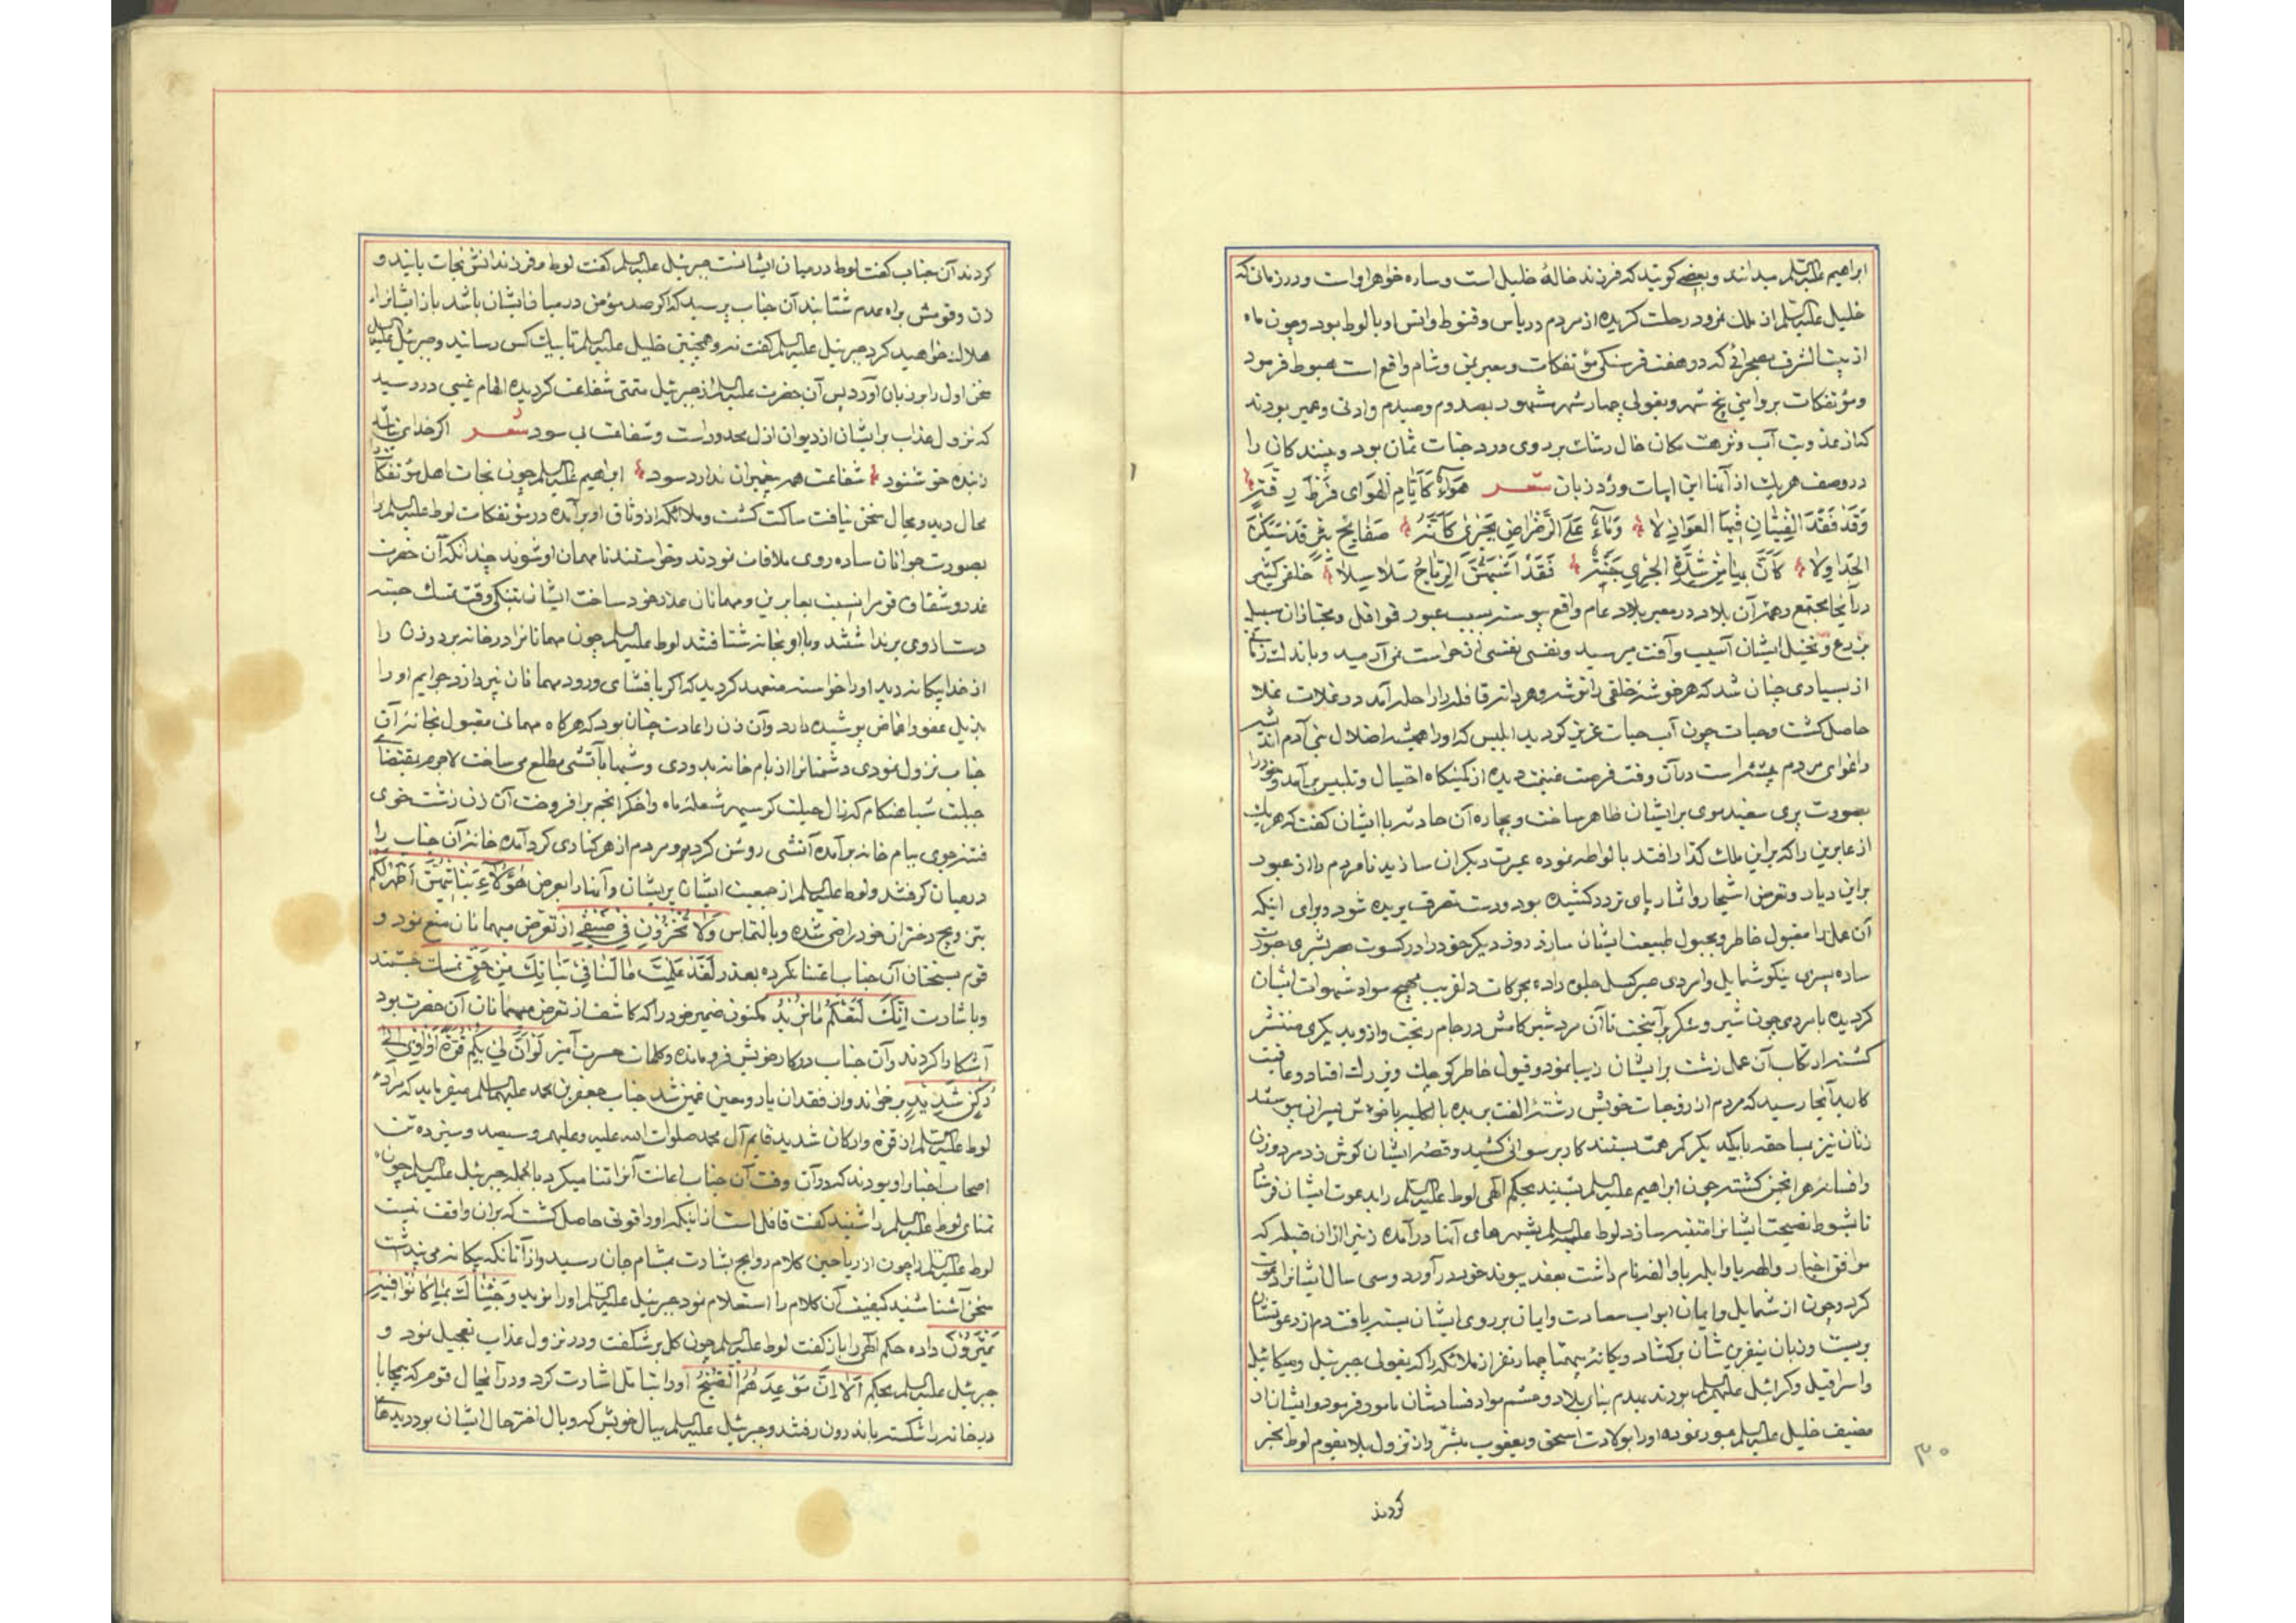 ابراهیم علیه‌السلم میدانند و بعضی کویند که فرزند خالهٔ خلیل است و ساره خواهر او است و در زمان که
خلیل علیه‌السلم از ملک نمرود رحلت کزیده از مردم در یاس و قنوط و انس او با لوط بود و چون ماه
از بیت الشرف بصحرائی که در هفت فرسنکی مؤتفکات و معبر یمن و شام واقع است هبوط فرمود
و مؤتفکات بروایتی پنج شهر و بقولی چهار شهر مشهور بصدوم و صیدم و ادنی و عمیر بودند
که از عذوبت آب و نزهت مکان خال رشک بر روی درد جنات ثمان بود و بینندکان را
در وصف هر یک از آنها این ابیات ورد زبان شعر هواء کایام الهوی فرط رقته
وقد فقد الفتیان فیها العواذلا و ماء علی الرضراض یجری کانه صفایح تبر قد سبکن
الجداولا کان بها من شدة الجری جنة فقد البستهن الریاح سلاسلا خلقی کثیر
در آنجا مجتمع و همه آن بلاد در معبر بلاد عام واقع پیوسته بسبب عبور قوافل و مجتازان سبیل
بزرع و نخیل ایشان آسیب و آفت میرسید و نفسی نفسی از خواست نمی آرمید و باندک زمانی
از بسیاری چنان شد که هر خوشه خلقی را توشه و هر دانه قافله را راحله آمد در غلات غلا
حاصل کشت و حبات چون آب حیات عزیز کردید ابلیس که او را همیشه اضلال بنی آدم اندیشه
و اغوای مردم پیشه است در آن وقت فرصت غنیمت دیده از کمینکاه احتیال و تلبیس برآمد و خود را
بصورت پیری سفید موی بر ایشان ظاهر ساخت و بچاره آن حادثه با ایشان کفت که هر یک
از عابرین را که بر این ملک کذار افتد با لواطه نموده عبرت دیکران سازید تا مردم را از عبور
بر این دیار و تعرض اشجار و اثمار پای تردد کشیده بود و دست تصرف بریده شود و برای اینکه
آن عمل را مقبول خاطر و مجبول طبیعت ایشان سازد روز دیکر خود را در کسوت هر بشری بصورت
ساده پسری نیکو شمایل و امردی صبر کسل جلوه داده بحرکات دلفریب مهیج مواد شهوات ایشان
کردیده با مردی چون شیر و شکر برآمیخت تا آن مرد شیر کامش در جام ریخت و از وی بدیکری منتشر
کشته ارتکاب آن عمل زشت بر ایشان زیبا نمود و قبول خاطر کوچک و بزرک افتاد و عاقبت
کار بدآنجا رسید که مردم از زوجات خویش رشته الفت بریده بالکلیه با خوش پسران پیوستند
زنان نیز بمساحقه با یکدیکر کمر همت ببستند کار برسوائی کشید و قصه ایشان کوش زد مرد و زن
و افسانه هر انجمن کشته چون ابراهیم علیه‌السلم بشنید بحکم الهی لوط علیه‌السلم را بدعوت ایشان فرستاد
تا بشوط نصیحت ایشانرا متنبه سازد لوط علیه‌السلم بشهرهای آنها درآمده زنی را از آن قبیله که
موافق اخبار والهه یا وابله یا والغه نام داشت بعقد پیوند خود درآورد و سی سال ایشانرا دعوت
کرد و چون از شمایل و ایمان ابواب سعادت و ایمان بر روی ایشان بسته یافت دم از دعوتشان
بربست و زبان بنفرین شان برکشاد و یکانه بیهمتا چهار نفر از ملائکه را که بقولی جبرئیل و میکائیل
و اسرافیل و کرائیل علیهم‌السلم بودند بهدم بنای بلاد و حسم مواد فسادشان مامور فرمود و ایشان از
مضیف خلیل علیه‌السلم عبور نموده او را بولادت اسحق و یعقوب مبشر و از نزول بلا بقوم لوط مخبر
کردند
۳۰
کردند آن جناب کفت لوط در میان ایشانست جبرئیل علیه‌السلم کفت لوط و فرزندانش نجات یابند و
زن و قومش براه عدم شتابند آن جناب پرسید که اکر صد مؤمن در میان ایشان باشد باز ایشانرا
هلاک خواهید کرد جبرئیل علیه‌السلم کفت نه و همچنین خلیل علیه‌السلم تا بیک کس رسانید و جبرئیل علیه‌السلم
سخن اول را بر زبان آورد پس آن حضرت علیه‌السلم از جبرئیل متمنی شفاعت کردیده الهام غیبی در رسید
که نزول عذاب بر ایشان از دیوان ازل محدور است و شفاعت بی سود شعر اکر خدای نباشد
ز بنده خوشنود شفاعت همه پیغمبران ندارد سود ابراهیم علیه‌السلم چون نجات اهل مؤتفکات
محال دید و مجال سخن نیافت ساکت کشت و ملائکه از وثاق او برآمده در مؤتفکات لوط علیه‌السلم را
بصورت جوانان ساده روی ملاقات نمودند و خواستند تا مهمان او شوند چندانکه آن حضرت
غدر و شقاق قوم را نسبت بعابرین و مهمانان عذر خود ساخت ایشان بتنکی وقت تمسک جسته
دست از وی برنداشتند و با او بخانه شتافتند لوط علیه‌السلم چون مهمانانرا در خانه برد و زن را
از خدا بیکانه دید او را خواسته متعهد کردید که اکر بافشای ورود مهمانان نپردازد جرایم او را
بذیل عفو و اغماض پوشیده دارد و آن زن را عادت چنان بود که هرکاه مهمانی مقبول بخانه آن
جناب نزول نمودی دشمنانرا از بام خانه بدودی و شبها بآتشی مطلع می ساخت لاجرم بمقتضای
جبلت شباهنکام که زال حیلت کر سپهر شعله ماه و اخکر انجم برافروخت آن زن زشت خوی
فتنه جوی ببام خانه برآمده آتشی روشن کرده و مردم از هر کناری کرد آمده خانه آن جناب را
در میان کرفتند و لوط علیه‌السلم از جمعیت ایشان پریشان و آنها را بعرض هؤلاء بناتی هن اطهر لکم
بتزویج دختران خود راضی شده و بالتماس ولا تخزون فی ضیفی از تعرض میهمانان منع نمود و
قوم بسخنان آن جناب اعتنا نکرده بعذر لقد علمت ما لنا فی بناتک من حق تمسک جستند
و باشارت انک لتعلم ما نرید مکنون ضمیر خود را که کاشف از تعرض میهمانان آن حضرت بود
آشکارا کردند و آن جناب در کار خویش فرو مانده و کلمات حسرت آمیز لو ان لی بکم قوة او آوی الی
رکن شدید برخواند و از فقدان یار و معین غمین شد جناب جعفر بن محمد علیهما السلم میفرماید که مراد
لوط علیه‌السلم از قوه و ارکان شدید قایم آل محمد صلوات الله علیه و علیهم و سیصد و سیزده تن
اصحاب اخیار او بودند که در آن وقت آن جناب اعانت آنرا تمنا میکرد بالجمله جبرئیل علیه‌السلم چون
تمنای لوط علیه‌السلم را شنید کفت غافل است از اینکه او را قوتی حاصل کشت که بران واقف نیست
لوط علیه‌السلم را چون از ریاحین کلام روایح بشارت بمشام جان رسید و از آنانکه بیکانه می پنداشت
سخن آشنا شنید کیفیت آن کلام را استعلام نمود جبرئیل علیه‌السلم او را نوید و جئناک بما کانوا فیه
یمترون داده حکم الهی را باز کفت لوط علیه‌السلم چون کل برشکفت و در نزول عذاب تعجیل نمود و
جبرئیل علیه‌السلم بحکم الا ان موعدهم الصبح او را بتامل اشارت کرد و در آنحال قوم که بیمحابا
در خانه را شکسته باندرون رفتند و جبرئیل علیه‌السلم ببال خویش که وبال اختر حال ایشان بود دیدهٔ